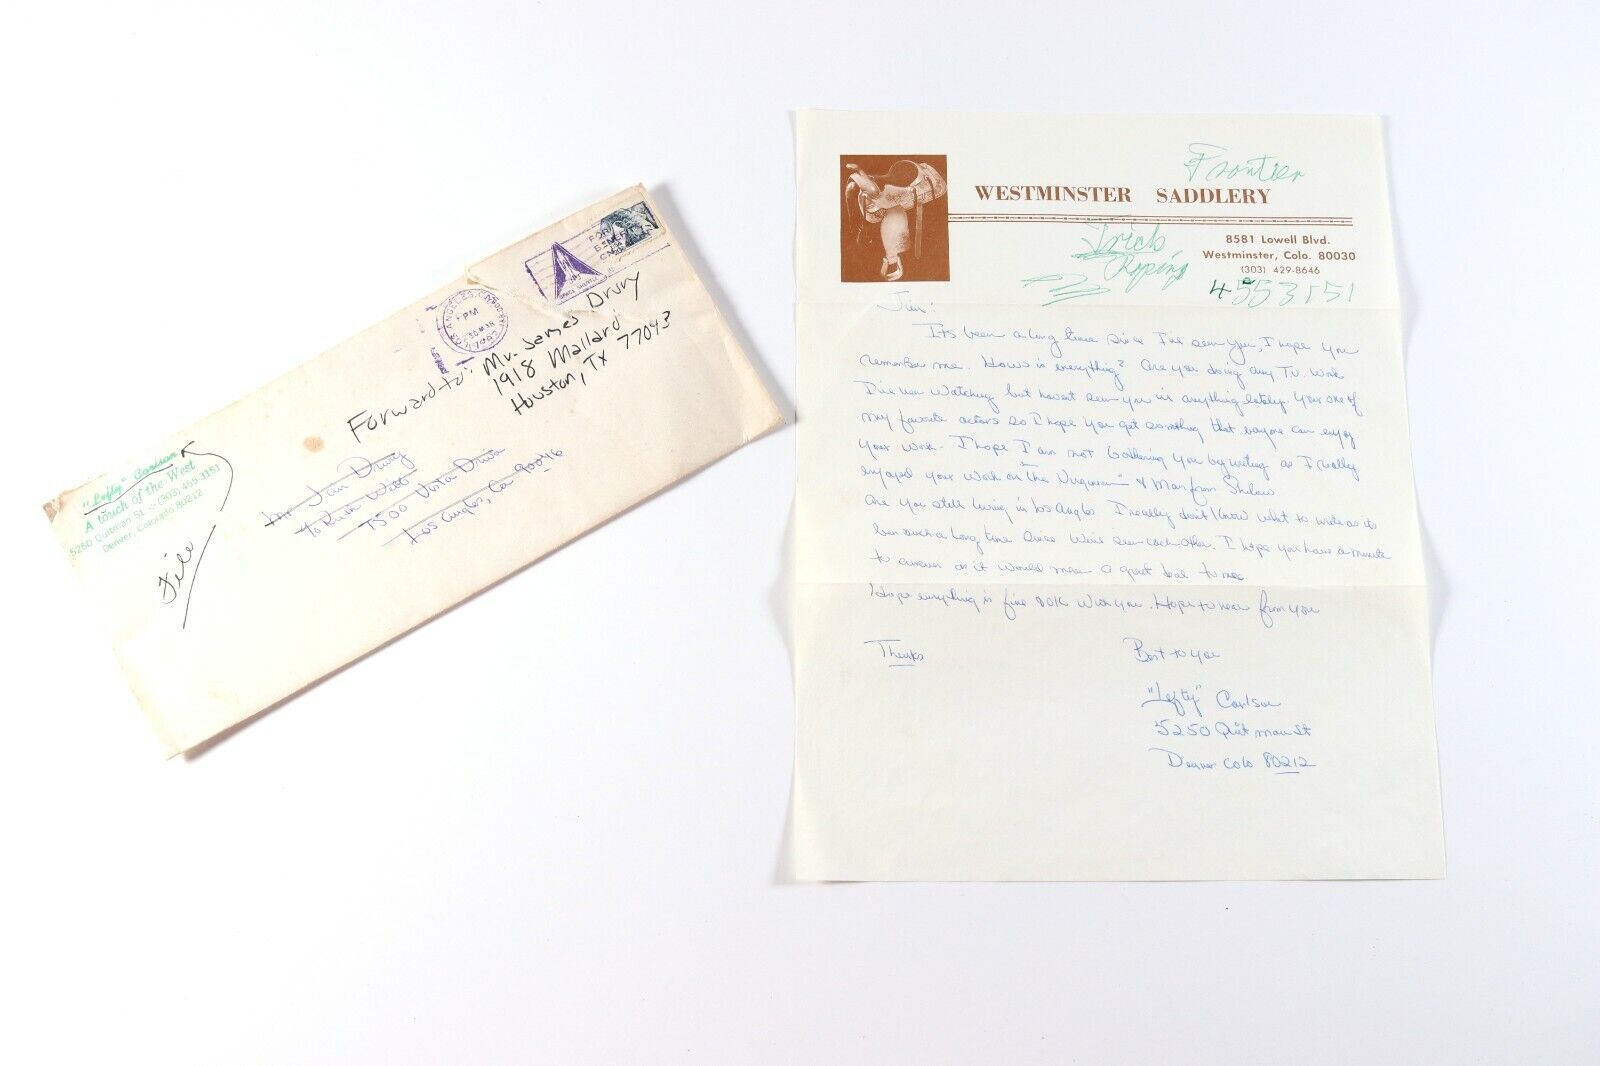 LOS ANGELES, CA
PM
30 MAR
SPACE SHUTTLE
FOR
BENEFIT
Forward to: Mr. James Drury
1918 Mallard
Houston, TX 77043
"Lefty" Carlson
A touch of the West
5250 Quitman St. (303) 455-3151
Denver, Colorado 80212
File
Mr Jim Drury
To Ruth Webb
7500 Vista Drive
Los Angles, Ca 90046
Frontier
WESTMINSTER SADDLERY
8581 Lowell Blvd.
Westminster, Colo. 80030
(303) 429-8646
Trick
Roping
4553151
Jim:
Its been a long time since I've seen you, I hope you
remember me. Hows is everything? Are you doing any TV. Work
I've been Watching but havent seen you in anything lately. Your one of
my favorite actors so I hope you get something that everyone can enjoy
your work. I hope I am not bothering you by writing as I really
enjoyed your work on "The Virginian" & Man from Shiloh
Are you still living in Los Angles I really don't know what to write as its
been such a long time since We've seen each other. I hope you have a minute
to answer as it would mean a great deal to me
I hope everything is fine & OK with you. Hope to hear from you
Thanks
Best to you
"Lefty" Carlson
5250 Quitman St
Denver Colo 80212